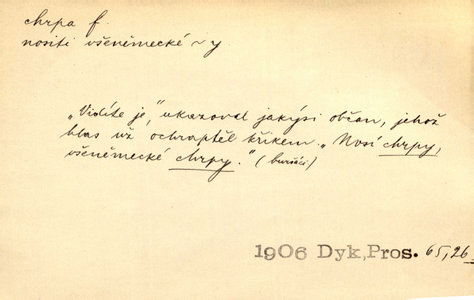 chrpa f.
nositi všeněmecké ~y
„Vidíte je“, ukazoval jakýsi občan, jehož
hlas už ochraptěl křikem. „Nosí chrpy,
všeněmecké chrpy.“ (buršáci)
1906 Dyk, Pros. 65, 26